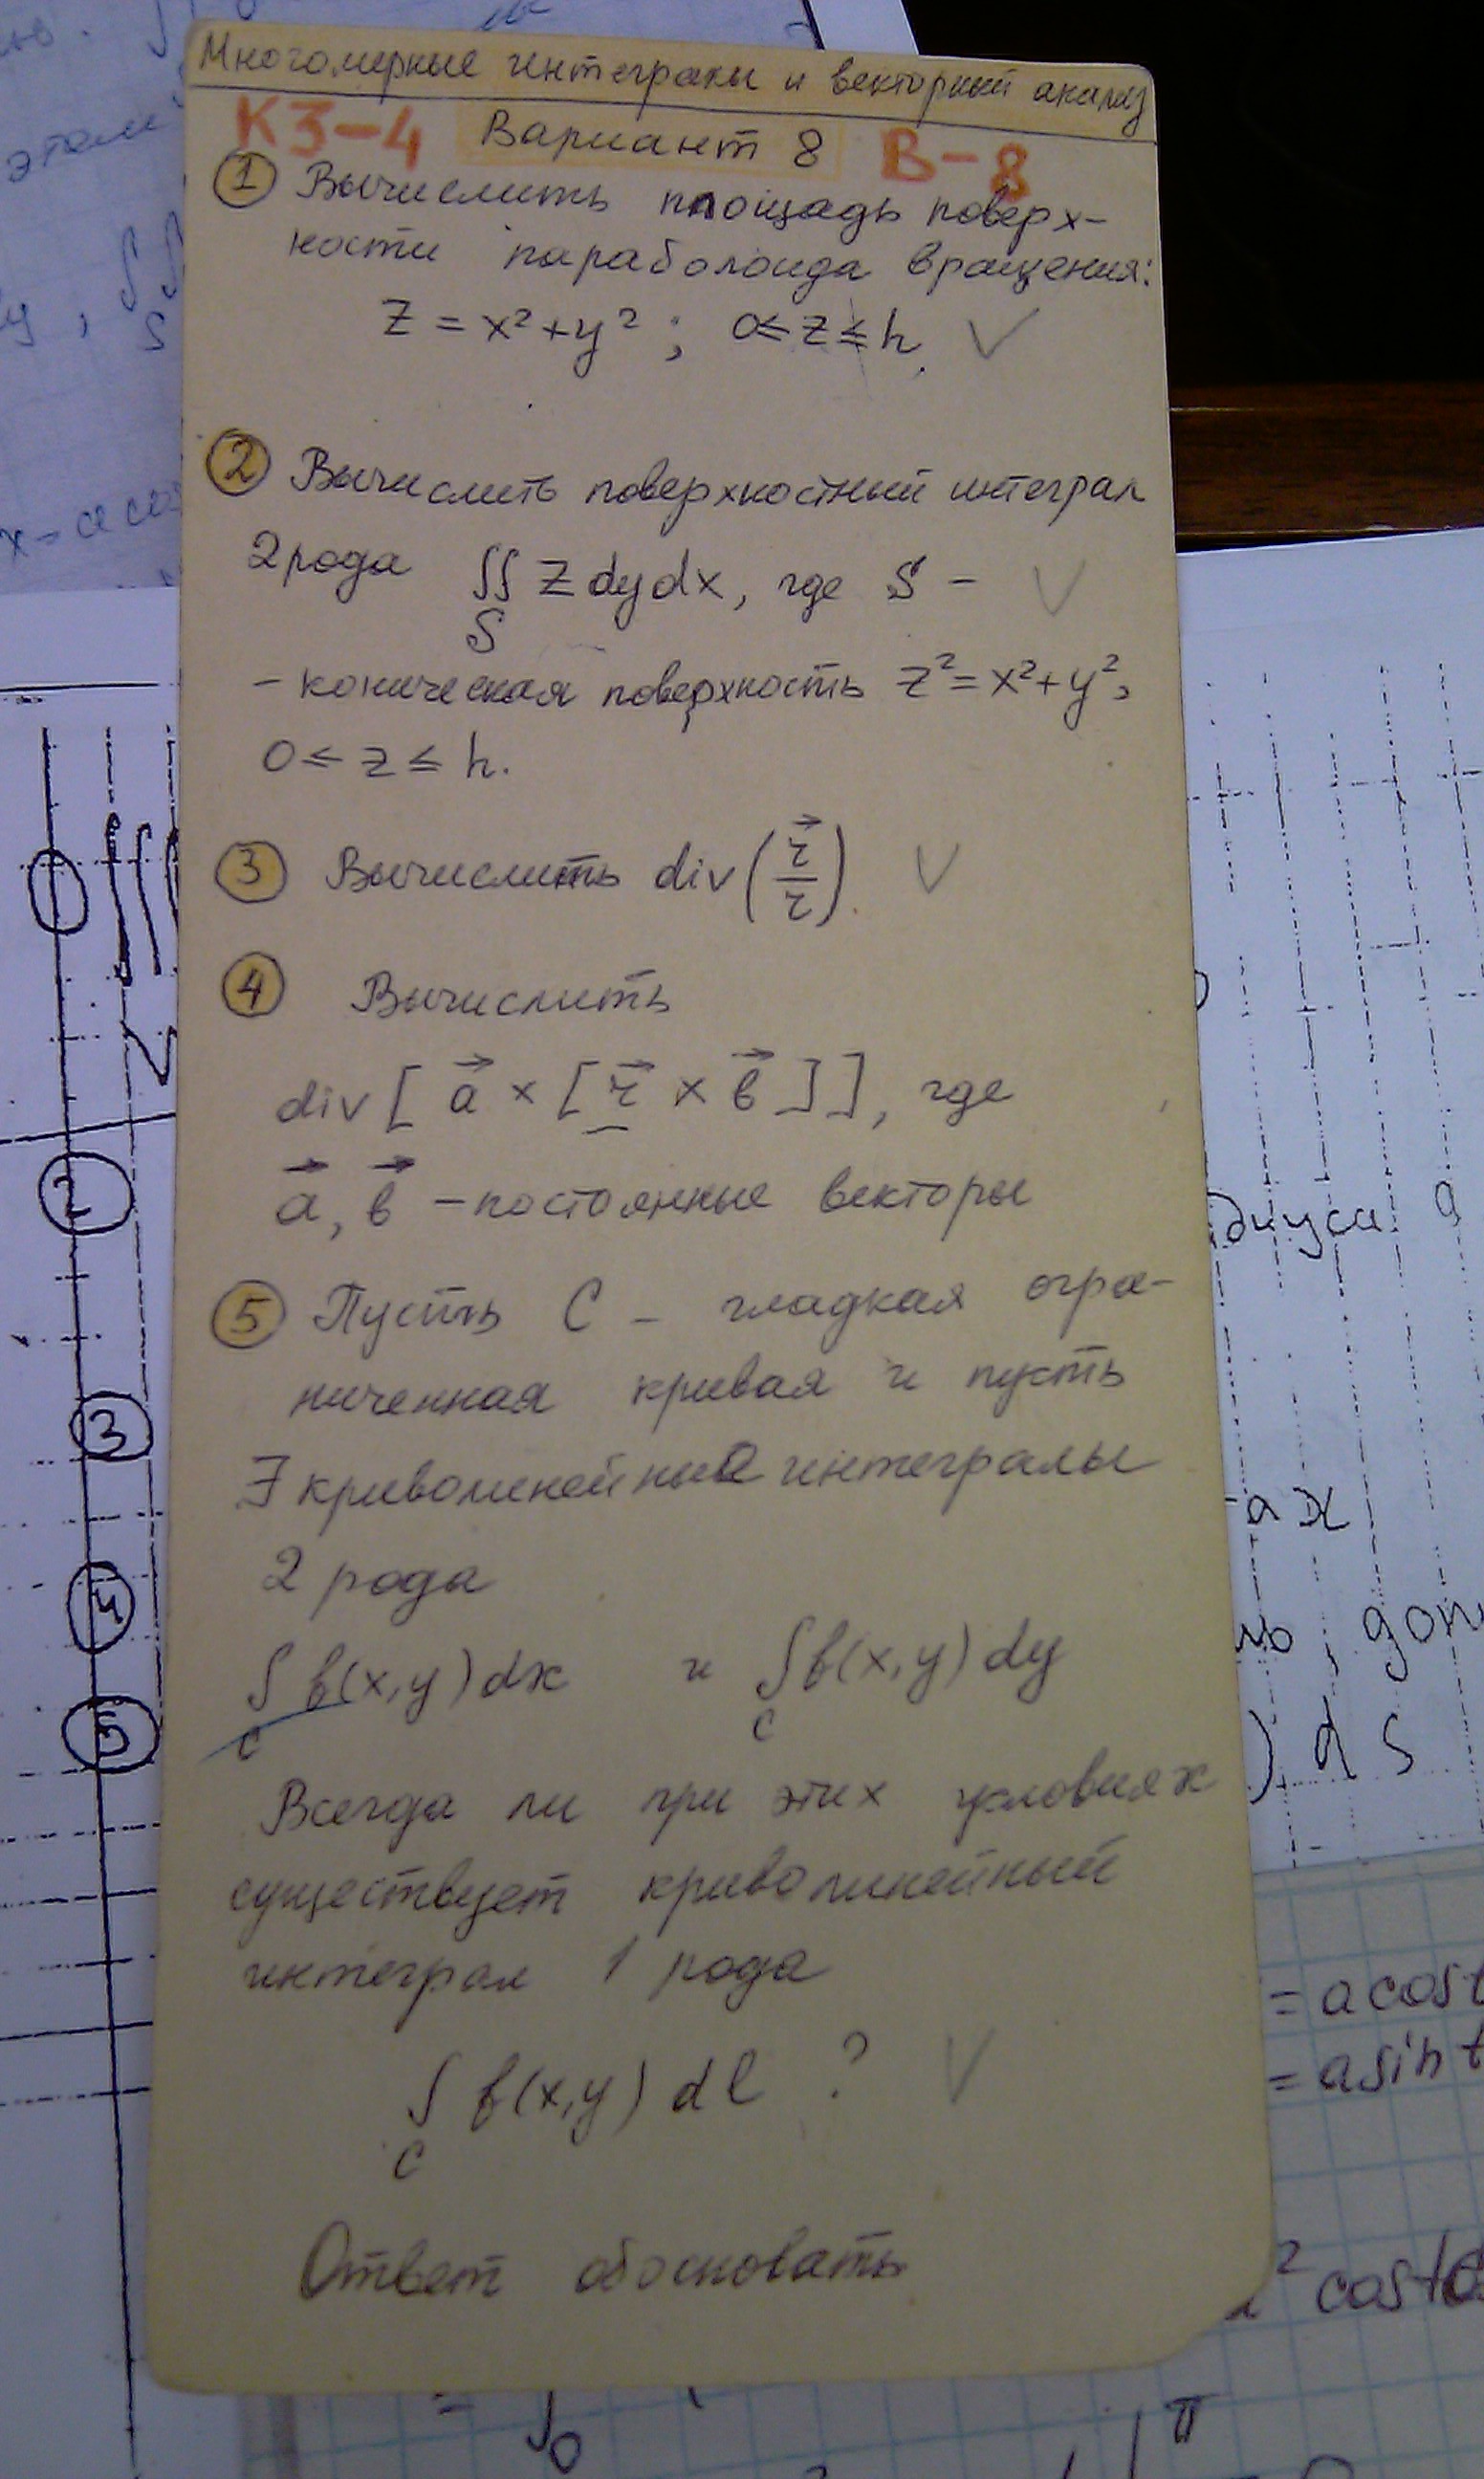 Многомерные интегралы и векторный анализ
КЗ-4 Вариант 8 В-8
① Вычислить площадь поверх-
ности параболоида вращения:
z = x² + y² ; 0 ≤ z ≤ h. V
② Вычислить поверхностный интеграл
2 рода ∬ z dy dx, где S - V
S
- коническая поверхность z² = x² + y²,
0 ≤ z ≤ h.
③ Вычислить div(r⃗/r). V
④ Вычислить
div [ a⃗ × [ r⃗ × b⃗ ] ], где
a⃗, b⃗ - постоянные векторы
⑤ Пусть C - гладкая огра-
ниченная кривая и пусть
∃ криволинейные интегралы
2 рода
∫ f(x,y) dx и ∫ f(x,y) dy
C C
Всегда ли при этих условиях
существует криволинейный
интеграл 1 рода
∫ f(x,y) dl ? V
C
Ответ обосновать
2
3
4
5
диуса
доп
) d S
= a cos t
= a sin t
π
0